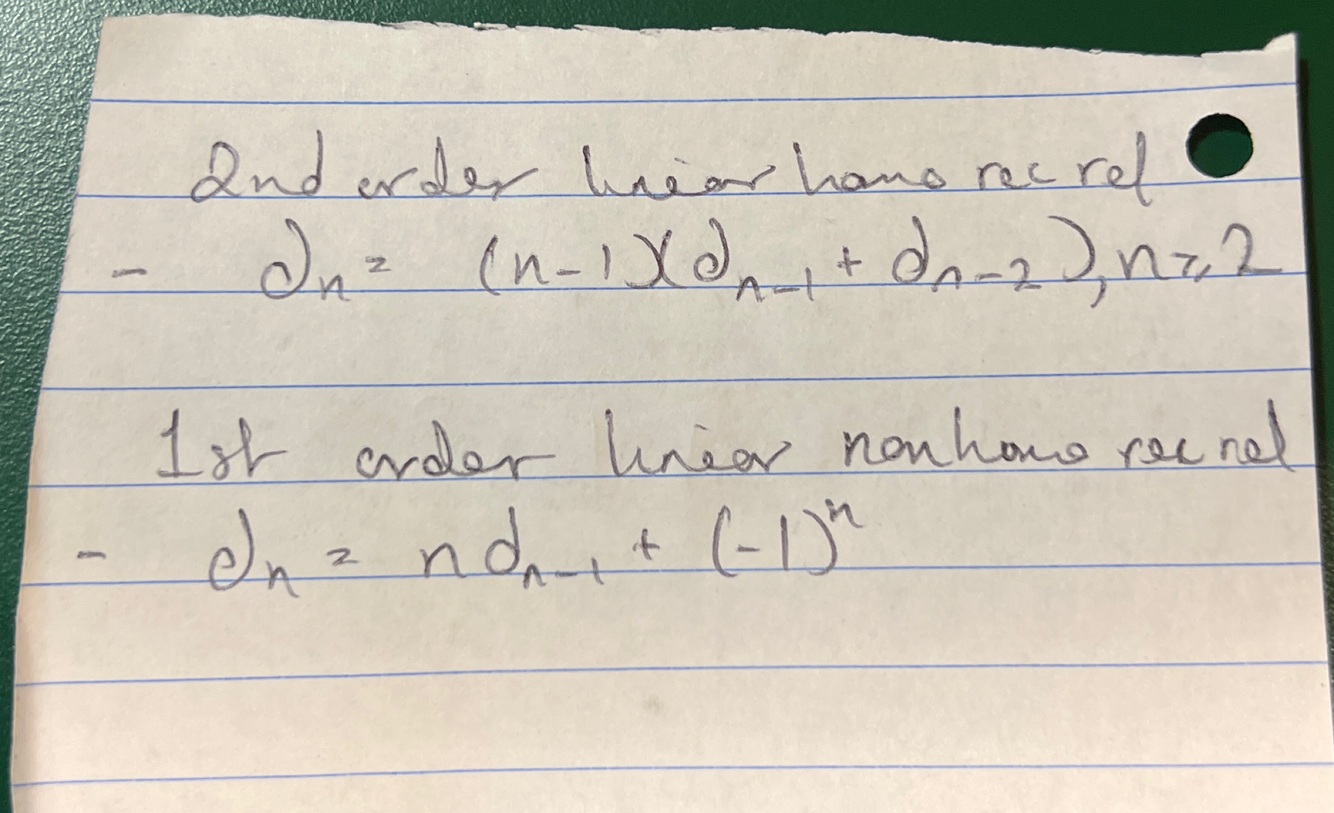 2nd order linear homo rec rel
- dₙ = (n-1)(dₙ₋₁ + dₙ₋₂), n ≥ 2
1st order linear nonhomo rec rel
- dₙ = n dₙ₋₁ + (-1)ⁿ